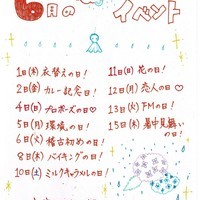 6月のイベント
1日(木)衣替えの日!
2日(金)カレー記念日!
4日(日)プロポーズの日♡
5日(月)環境の日!
6日(火)稽古初めの日!
8日(木)バイキングの日!
10日(土)ミルクキャラメルの日!
11日(日)花の日!
12日(月)恋人の日♡
13日(火)FMの日!
15日(木)暑中見舞いの日!